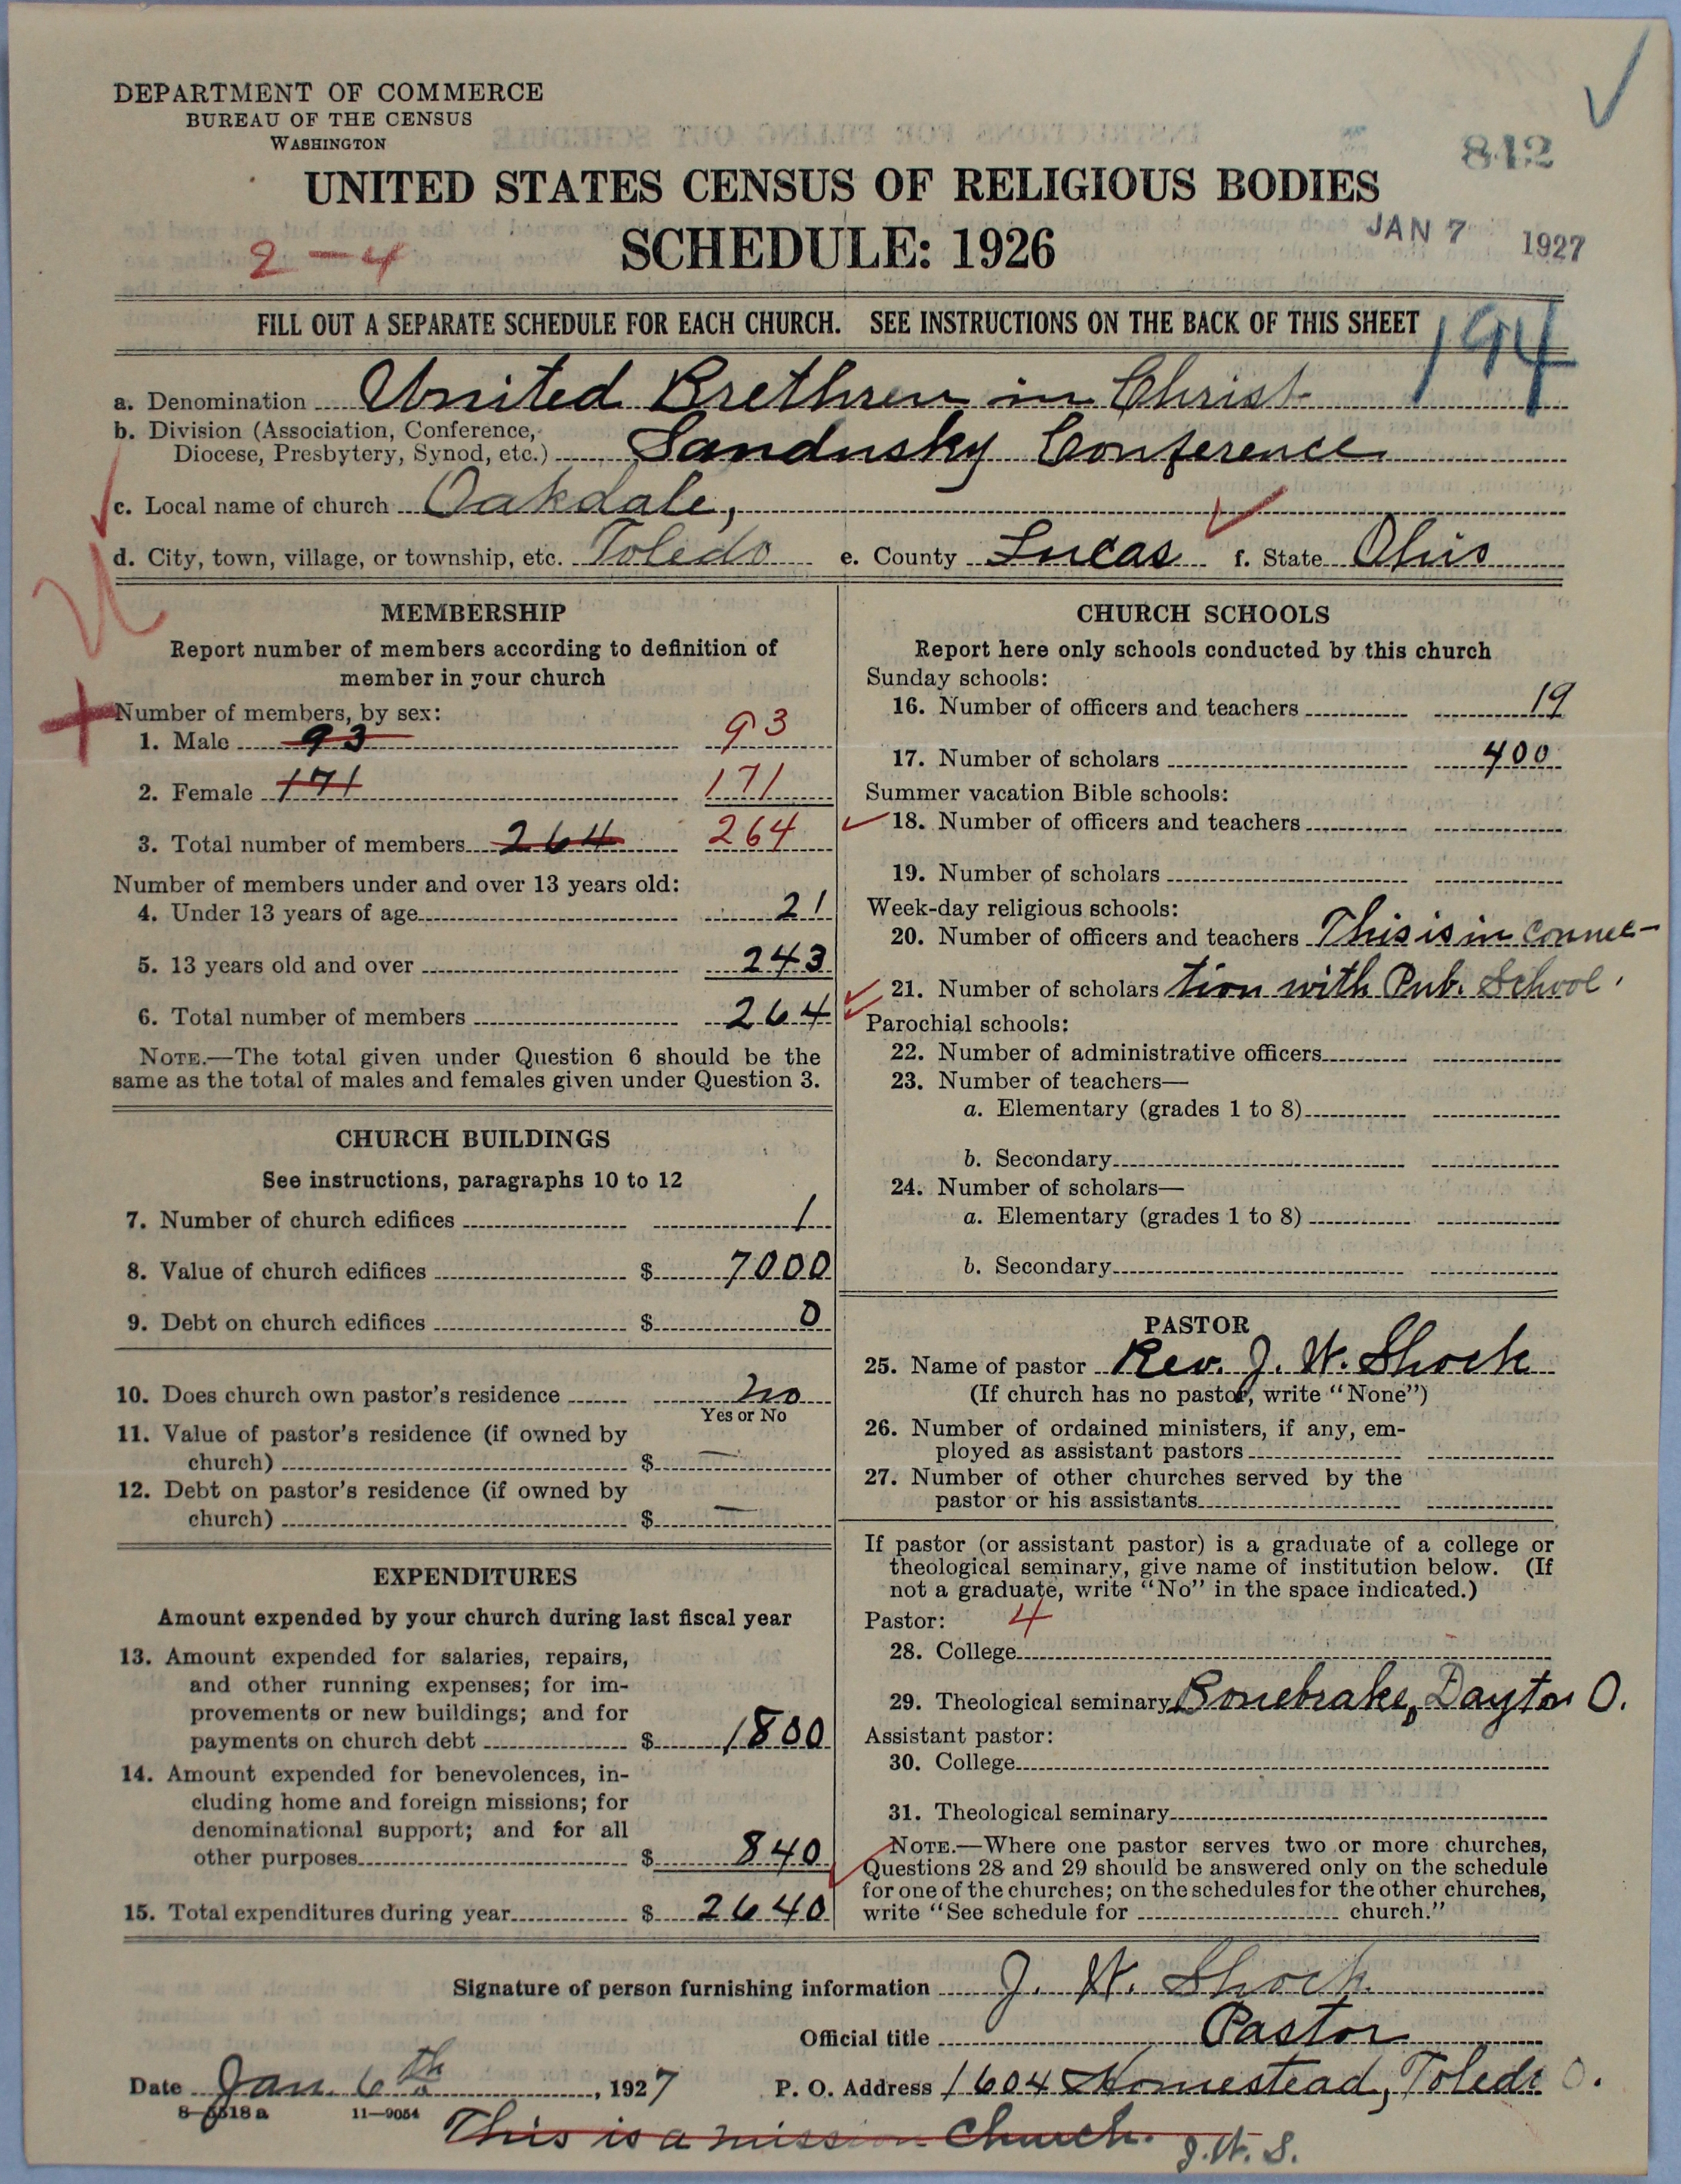 DEPARTMENT OF COMMERCE
BUREAU OF THE CENSUS
WASHINGTON
842
UNITED STATES CENSUS OF RELIGIOUS BODIES
SCHEDULE: 1926
JAN 7 1927
2-4
FILL OUT A SEPARATE SCHEDULE FOR EACH CHURCH. SEE INSTRUCTIONS ON THE BACK OF THIS SHEET
194
a. Denomination United Brethren in Christ
b. Division (Association, Conference, Diocese, Presbytery, Synod, etc.) Sandusky Conference
c. Local name of church Oakdale,
d. City, town, village, or township, etc. Toledo e. County Lucas f. State Ohio
MEMBERSHIP
Report number of members according to definition of
member in your church
Number of members, by sex:
1. Male 93 93
2. Female 171 171
3. Total number of members 264 264
Number of members under and over 13 years old:
4. Under 13 years of age 21
5. 13 years old and over 243
6. Total number of members 264
NOTE.—The total given under Question 6 should be the
same as the total of males and females given under Question 3.
CHURCH BUILDINGS
See instructions, paragraphs 10 to 12
7. Number of church edifices 1
8. Value of church edifices $ 7000
9. Debt on church edifices $ 0
10. Does church own pastor's residence no
Yes or No
11. Value of pastor's residence (if owned by
church) $ —
12. Debt on pastor's residence (if owned by
church) $ —
EXPENDITURES
Amount expended by your church during last fiscal year
13. Amount expended for salaries, repairs,
and other running expenses; for im-
provements or new buildings; and for
payments on church debt $ 1800
14. Amount expended for benevolences, in-
cluding home and foreign missions; for
denominational support; and for all
other purposes $ 840
15. Total expenditures during year $ 2640
CHURCH SCHOOLS
Report here only schools conducted by this church
Sunday schools:
16. Number of officers and teachers 19
17. Number of scholars 400
Summer vacation Bible schools:
18. Number of officers and teachers
19. Number of scholars
Week-day religious schools:
20. Number of officers and teachers This is in connec-
21. Number of scholars tion with Pub. School.
Parochial schools:
22. Number of administrative officers
23. Number of teachers—
a. Elementary (grades 1 to 8)
b. Secondary
24. Number of scholars—
a. Elementary (grades 1 to 8)
b. Secondary
PASTOR
25. Name of pastor Rev. J. W. Shock
(If church has no pastor, write "None")
26. Number of ordained ministers, if any, em-
ployed as assistant pastors
27. Number of other churches served by the
pastor or his assistants
If pastor (or assistant pastor) is a graduate of a college or
theological seminary, give name of institution below. (If
not a graduate, write "No" in the space indicated.)
Pastor: 4
28. College
29. Theological seminary Bonebrake, Dayton O.
Assistant pastor:
30. College
31. Theological seminary
NOTE.—Where one pastor serves two or more churches,
Questions 28 and 29 should be answered only on the schedule
for one of the churches; on the schedules for the other churches,
write "See schedule for church."
Signature of person furnishing information J. W. Shock
Official title Pastor
Date Jan. 6th, 1927 P. O. Address 1604 Homestead, Toledo O.
8-5518a 11-9054
This is a mission church. J.W.S.